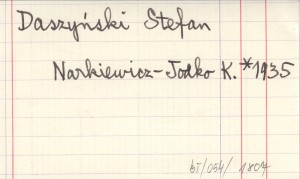 Daszyński Stefan
Narkiewicz-Jodko K. *1935
bī/054/ 1807